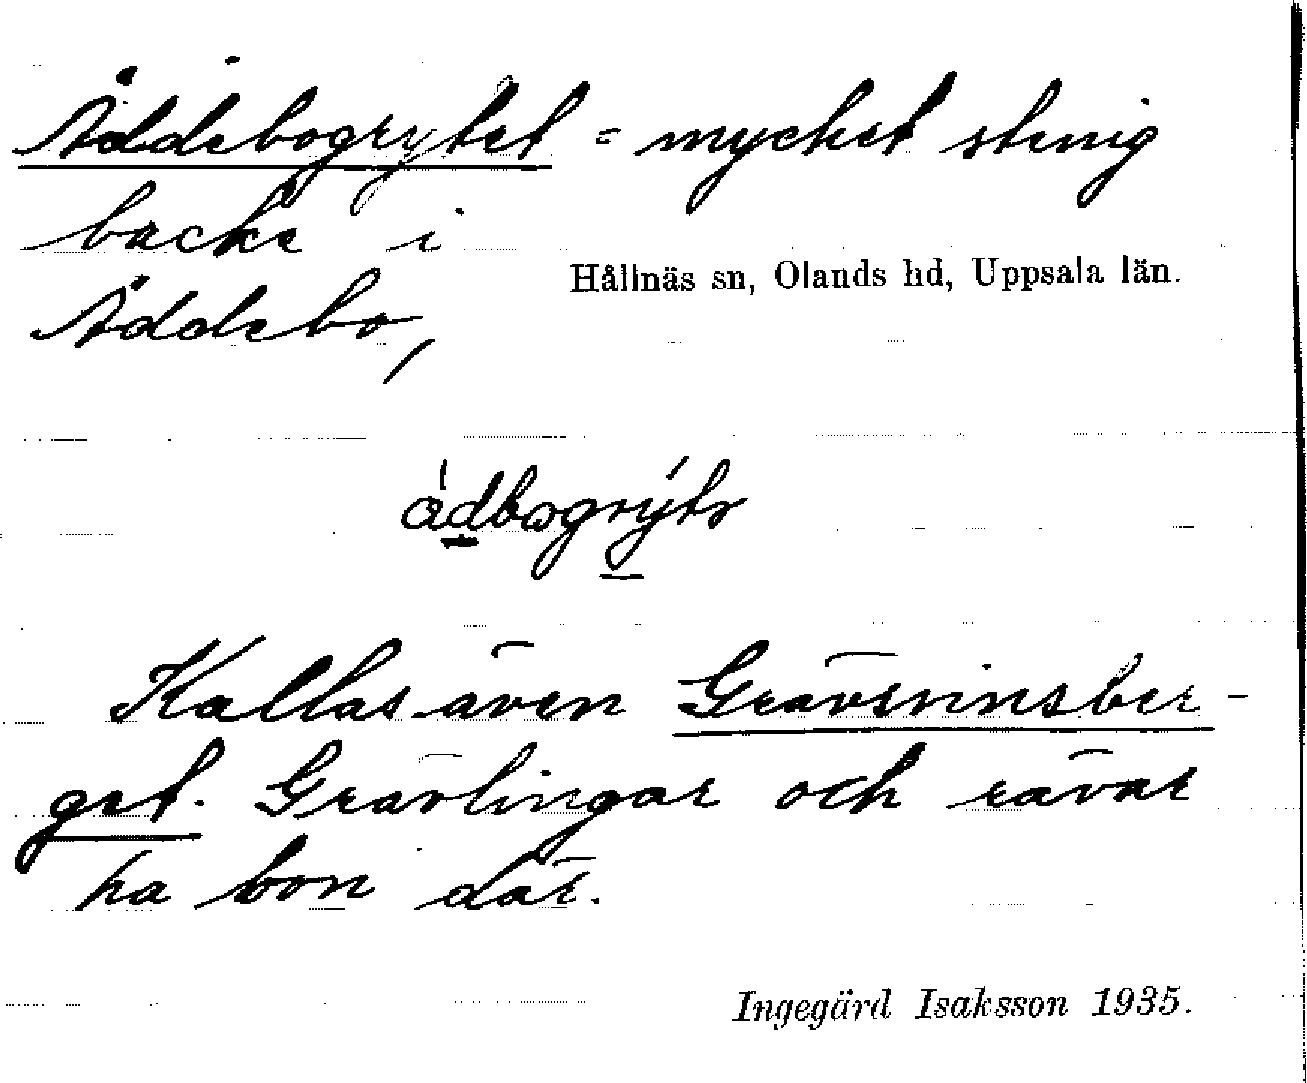 Åddebogrytet = mycket stenig
backe i
Hållnäs sn, Olands hd, Uppsala län.
Åddebo,
Kallas även Grävsvinsber-
get. Grävlingar och rävar
ha bon där.
Ingegärd Isaksson 1935.